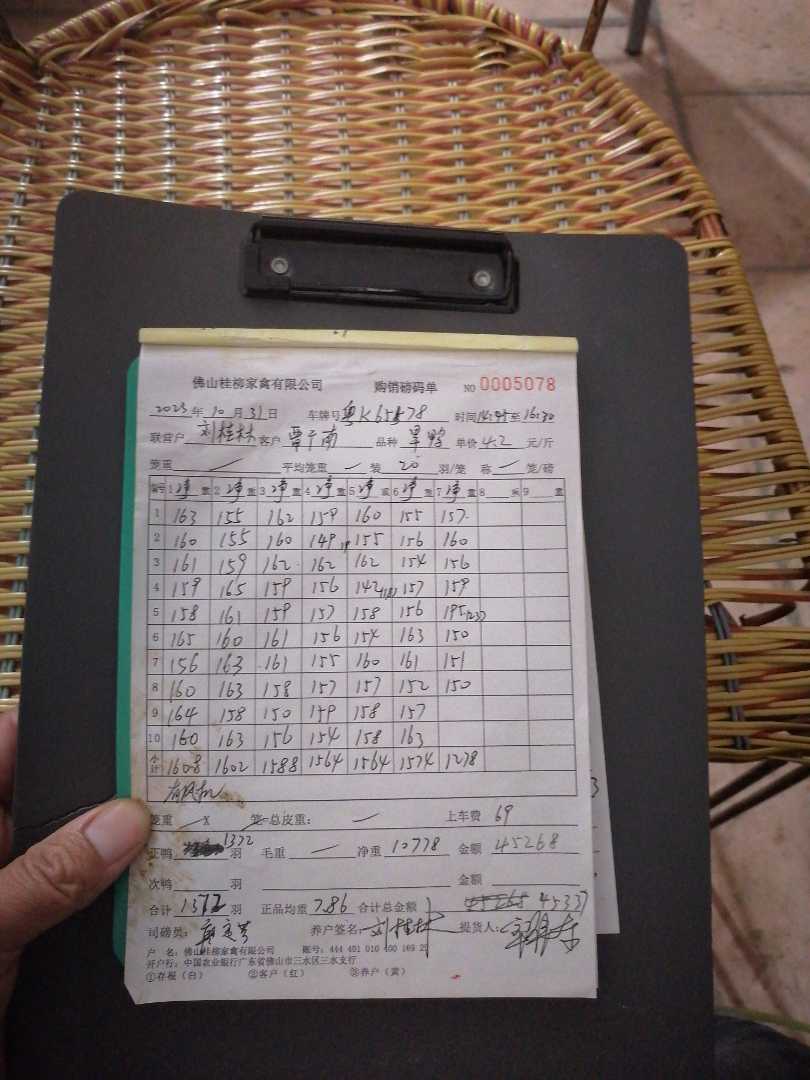 佛山桂柳家禽有限公司 购销磅码单 NO 0005078
2023年10月31日 车牌号粤K65578 时间14:45至16:30
联营户 刘桂林 客户 南 品种 旱鸭 单价4.2元/斤
笼重 / 平均笼重 一 装 20 羽/笼 称 一 笼/磅
编号 1净重 2净重 3净重 4净重 5净重 6净重 7净重 8 重 9 重
1 163 155 162 159 160 155 157
2 160 155 160 149 19 155 156 160
3 161 159 162 162 162 154 156
4 159 165 159 156 142 157 159
5 158 161 159 157 158 156 195
6 165 160 161 156 154 163 150
7 156 163 161 155 160 161 151
8 160 163 158 157 157 152 150
9 164 158 150 159 158 157
10 160 163 156 154 158 163
合计 1608 1602 1588 1564 1564 1574 1278
笼重 / X 笼=总皮重: / 上车费 69
正鸭 1372 羽 毛重 一 净重 10778 金额 45268
次鸭 羽 金额
合计 1372 羽 正品均重 7.86 合计总金额 45337
司磅员: 养户签名: 刘桂林 提货人:
户 名: 佛山桂柳家禽有限公司 账号: 444 401 010 400 169 25
开户行: 中国农业银行广东省佛山市三水区三水支行
①存根(白) ②客户(红) ③养户(黄)